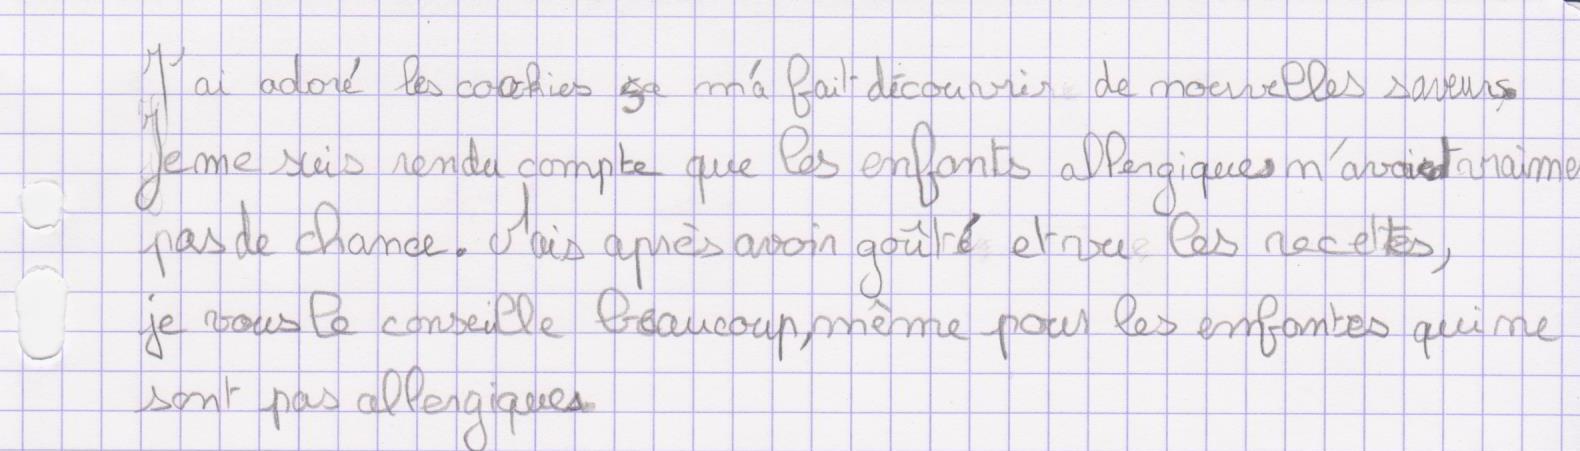 J'ai adoré les cookies ça m'a fait découvrir de nouvelles saveurs
Je me suis rendu compte que les enfants allergiques n'avaient vraime
pas de chance. Mais après avoir goûté et vu les recettes,
je vous le conseille beaucoup, même pour les enfantes qui ne
sont pas allergiques